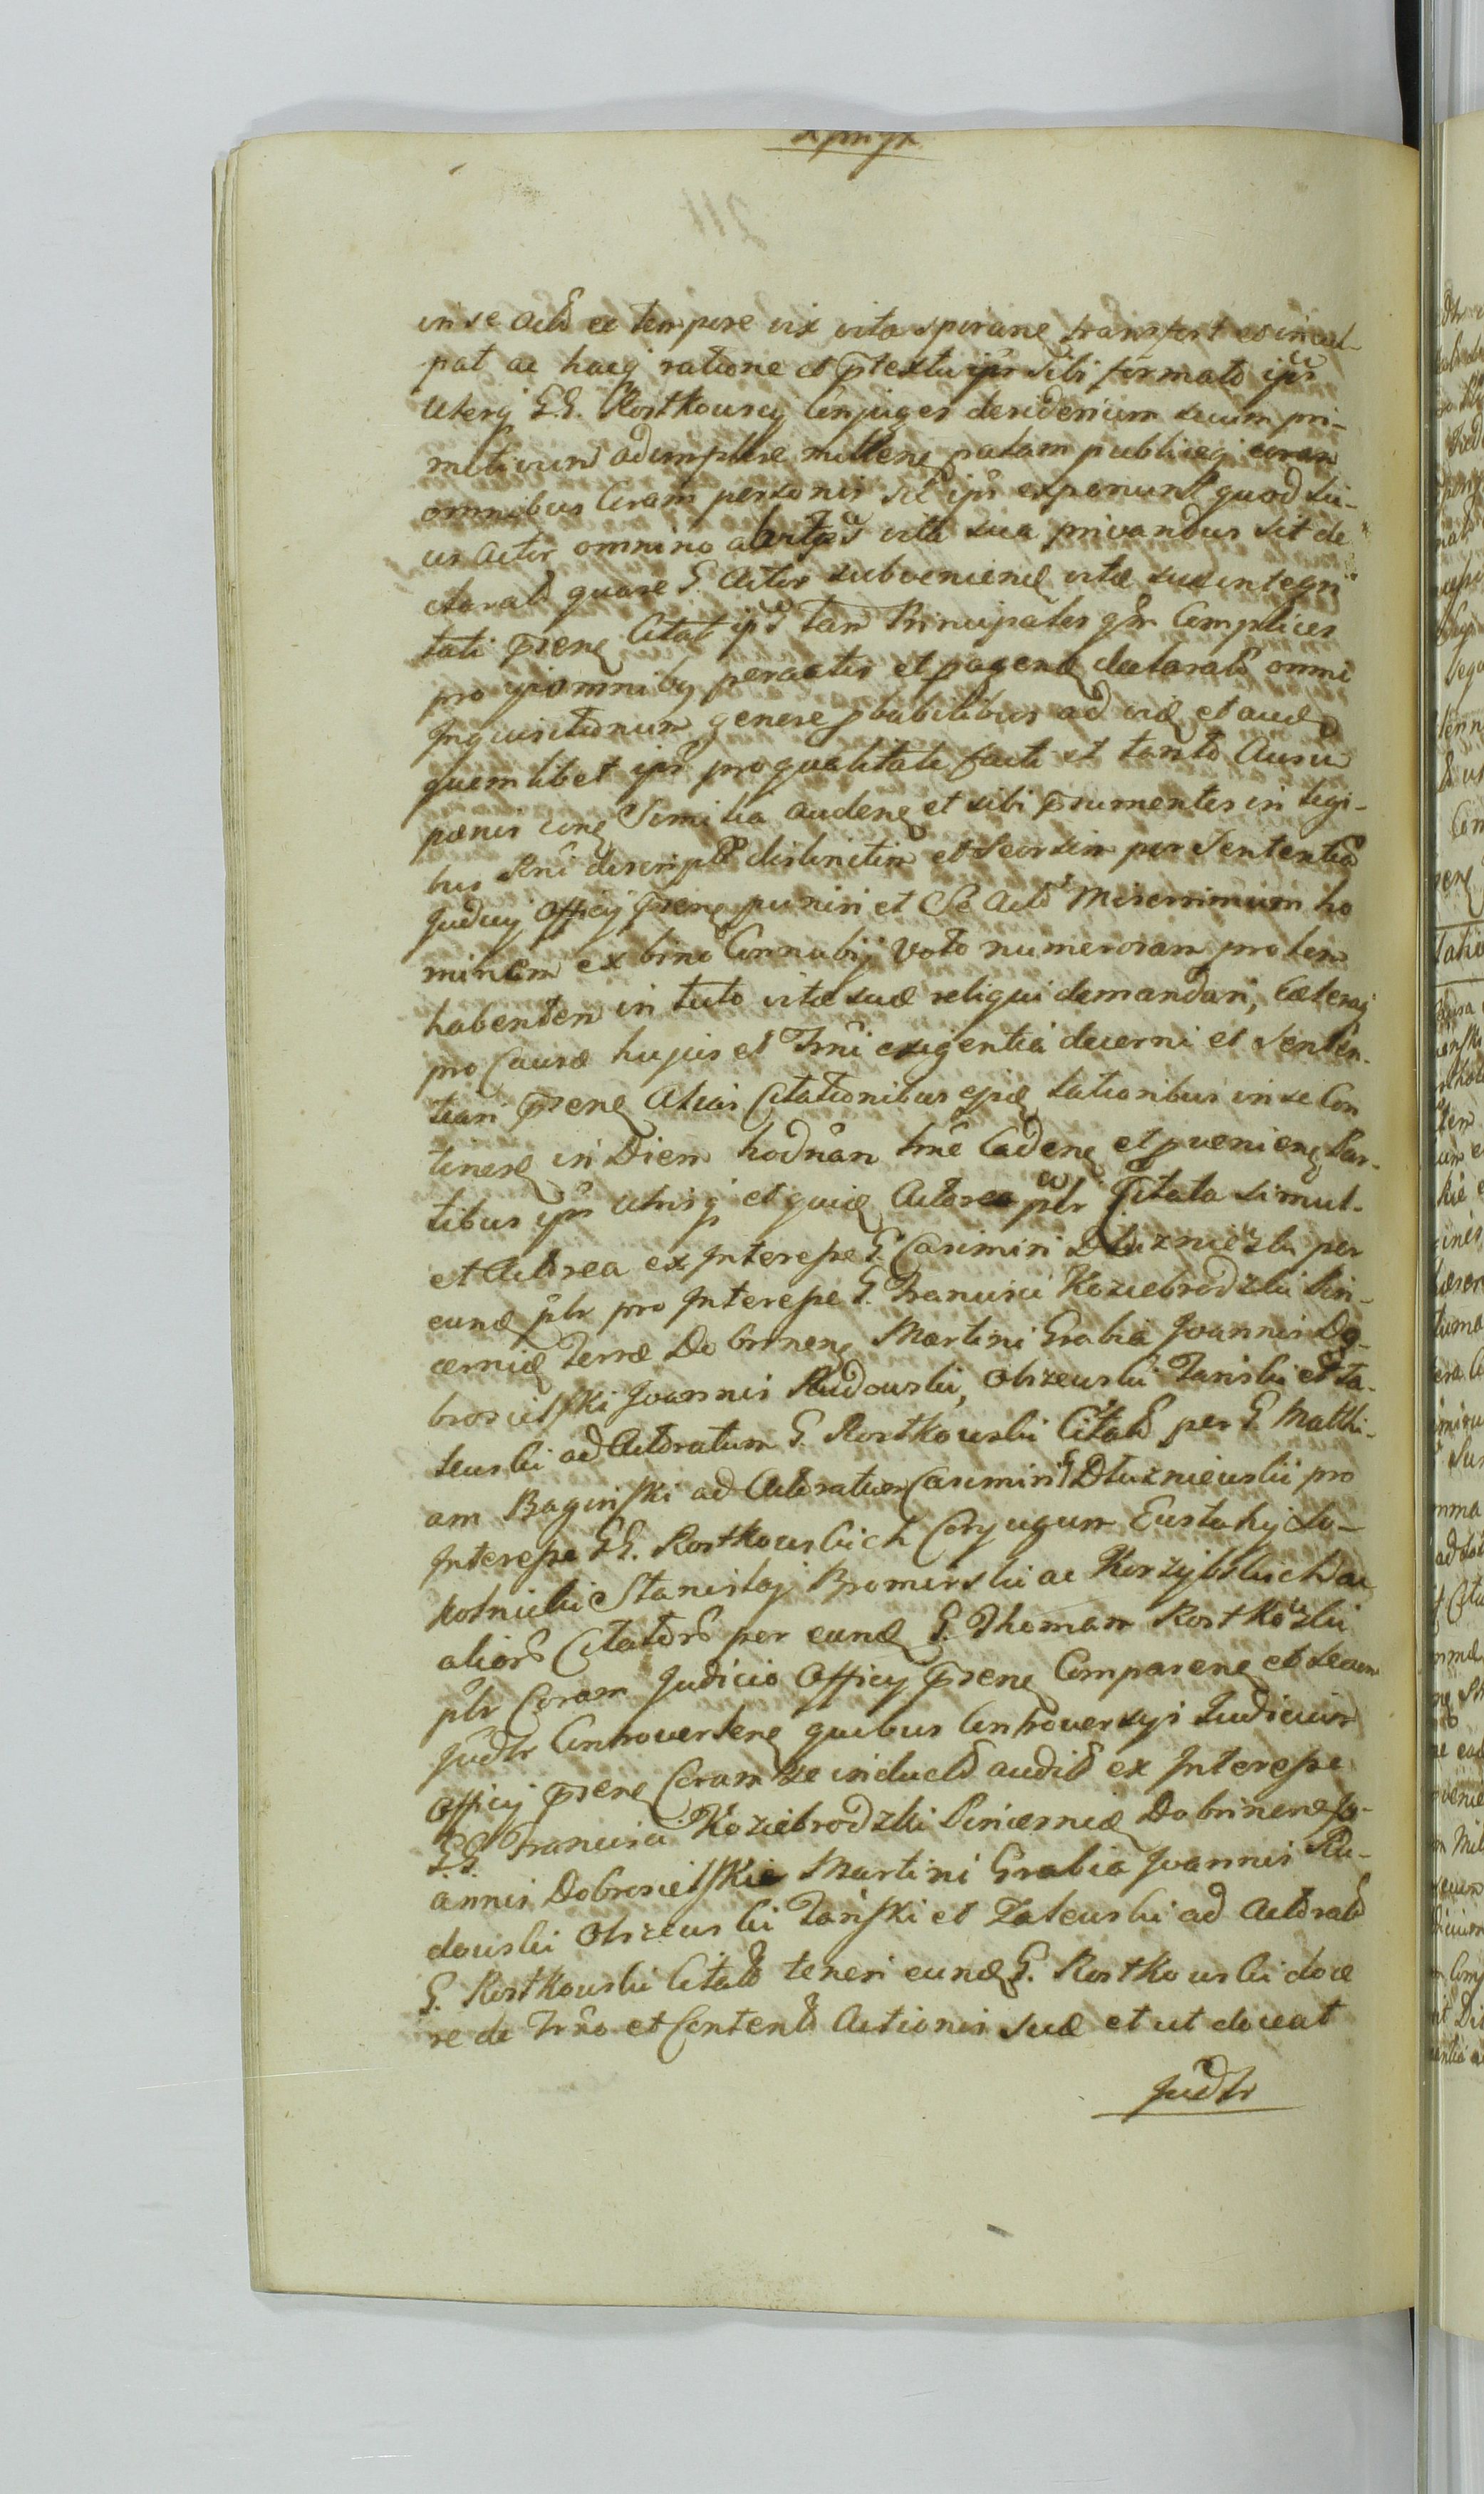 in se Actō ex tempore vix vita spiranē transfert et incul-
pat ac hacq ratione et p̄textu ipīs sibi formato ipīs
uterq G.G. Rostkowscij Conjuges desiderium suum pri-
mitivum adimplere nittenē palam publiceq coram
omnibus Coram personis se ipīs exponunt quod su-
us Actor omnino ab vita sua privandus sit de
claratō quare G. Actor subvenienē vitæ suæ integri
tati p̄senē Citat ipō tam Principales qm̄ Complices
pro omnibq peractis et pagenđ declaratō omni
Inquisitionum genere pbabilibus ad id et aud
quemlibet ipīs pro qualitate facti et tanto Ausu
pænis cunē Similia audenē et sibi p̄sumentes in legi-
bus Rni descriptō distinctim et Seorsim per Sententiā
Judicij Officij p̄senē puniri et Se Actō Miserrimum ho
minem ex bino Connubij Voto numerosam prolem
habentem in tuto vitæ suæ reliqui demandari, Cæteraq
pro Causæ hujus et Trni exigentia decerni et Senten-
tiari p̄senē Alias Citationibus ejuđ lationibus in se Con
tinerē in Diem hodnam trnē Cadenē et pvenienē Par-
tibus ipīs utrisq et quiđ Actorea plr Citata simul-
et Actorea ex Interesse G. Casimiri Dłuzniewski per
eunđ plr pro Interesse G. Francisci Koziebrodzki Pin-
cerniæ Terræ Dobrinenē Martini Grabia Joannis Do-
brosielski Joannis Rudowski, Olszewski Tanski et Za-
lewski ad Actoratum G. Rostkowski Citatō per G. Matthi-
am Baginski ad Actoratum Casimiri G Dłuzniewski pro
Interesse GG. Rostkowskich Conjugum Eustahij So-
kolnicki Stanislaj Bromirski ac Korzybskich ac
aliorō Citatorō per eunđ G. Thomam Rostkowski
plr Coram Judicio Officij p̄senē Comparenē et secum
Judlr Controvertenē quibus Controversijs Judicium
Officij p̄senē Coram se inductō auditō ex Interesse
G.G. Francisci Koziebrodzki Pincerniæ Dobrinenē Jo-
annis Dobrosielski Martini Grabia Joannis Ru-
dowski Olszewski Tanski et Zalewski ad Actoratō
G. Rostkowski Citatō teneri eunđ G. Rostkowski doce
re de Trno et Contentō Actionis suæ et ut doceat
Judlr